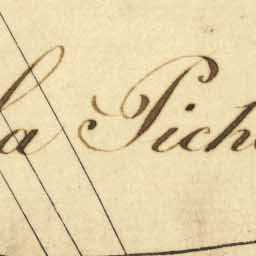 la Pich